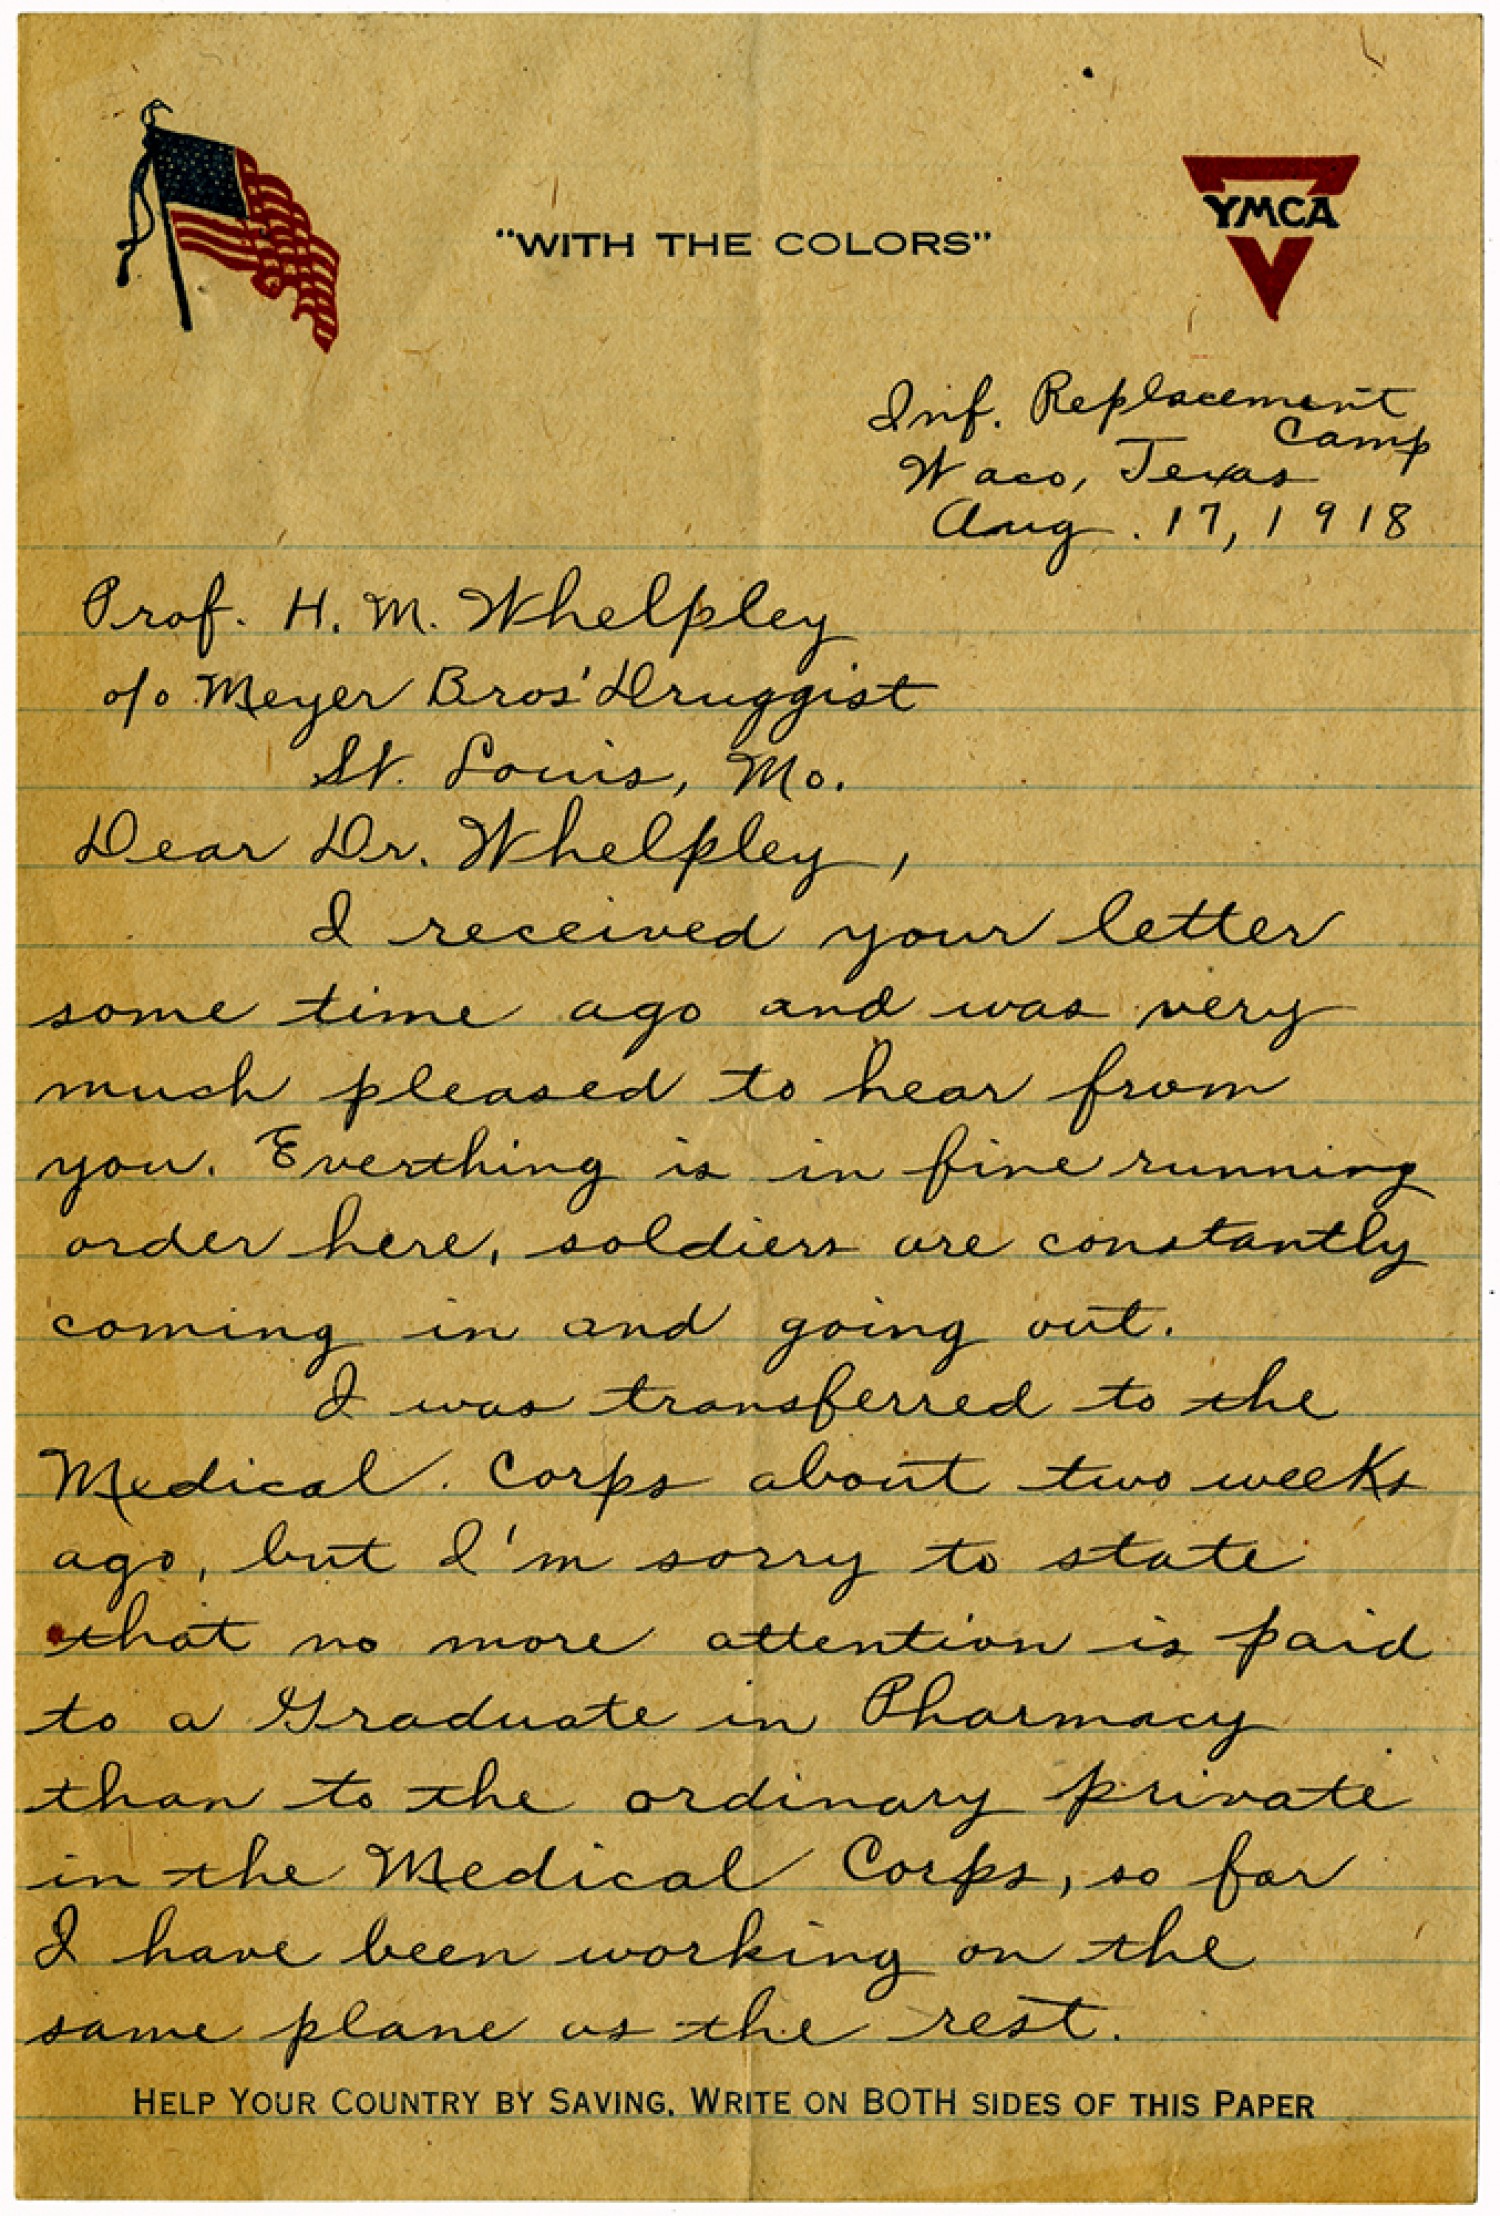 "WITH THE COLORS"
YMCA
Inf. Replacement
Camp
Waco, Texas
Aug. 17, 1918
Prof. H. M. Whelpley
c/o Meyer Bros' Druggist
St. Louis, Mo.
Dear Dr. Whelpley,
I received your letter
some time ago and was very
much pleased to hear from
you. Everthing is in fine running
order here, soldiers are constantly
coming in and going out.
I was transferred to the
Medical Corps about two weeks
ago, but I'm sorry to state
that no more attention is paid
to a Graduate in Pharmacy
than to the ordinary private
in the Medical Corps, so far
I have been working on the
same plane as the rest.
HELP YOUR COUNTRY BY SAVING. WRITE ON BOTH SIDES OF THIS PAPER